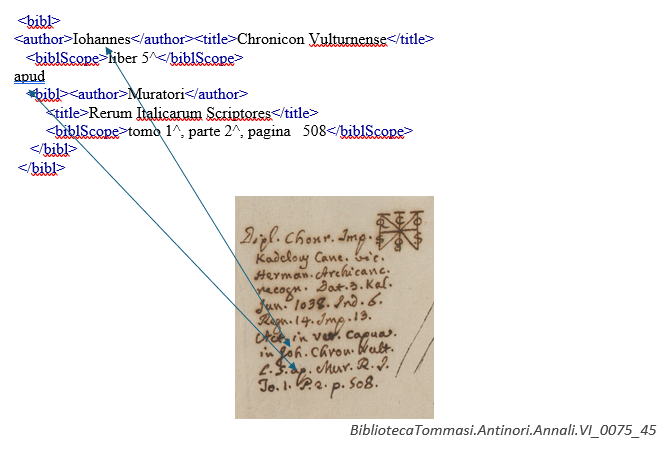 <bibl>
<author>Iohannes</author><title>Chronicon Vulturnense</title>
<biblScope>liber 5^</biblScope>
apud
<bibl><author>Muratori</author>
<title>Rerum Italicarum Scriptores</title>
<biblScope>tomo 1^, parte 2^, pagina 508</biblScope>
</bibl>
</bibl>
Dipl. Chonr. Imp.
Kadelous Canc. vic.
Herman. Archicanc.
recogn. Dat. 3. Kal.
Jun. 1038. Ind. 6.
Regn. 14. Imp. 13.
Act. in vet. Capua.
in Joh. Chron. Vult.
L. 5. ap. Mur. R. I.
To. 1. P. 2. p. 508.
BibliotecaTommasi.Antinori.Annali.VI_0075_45